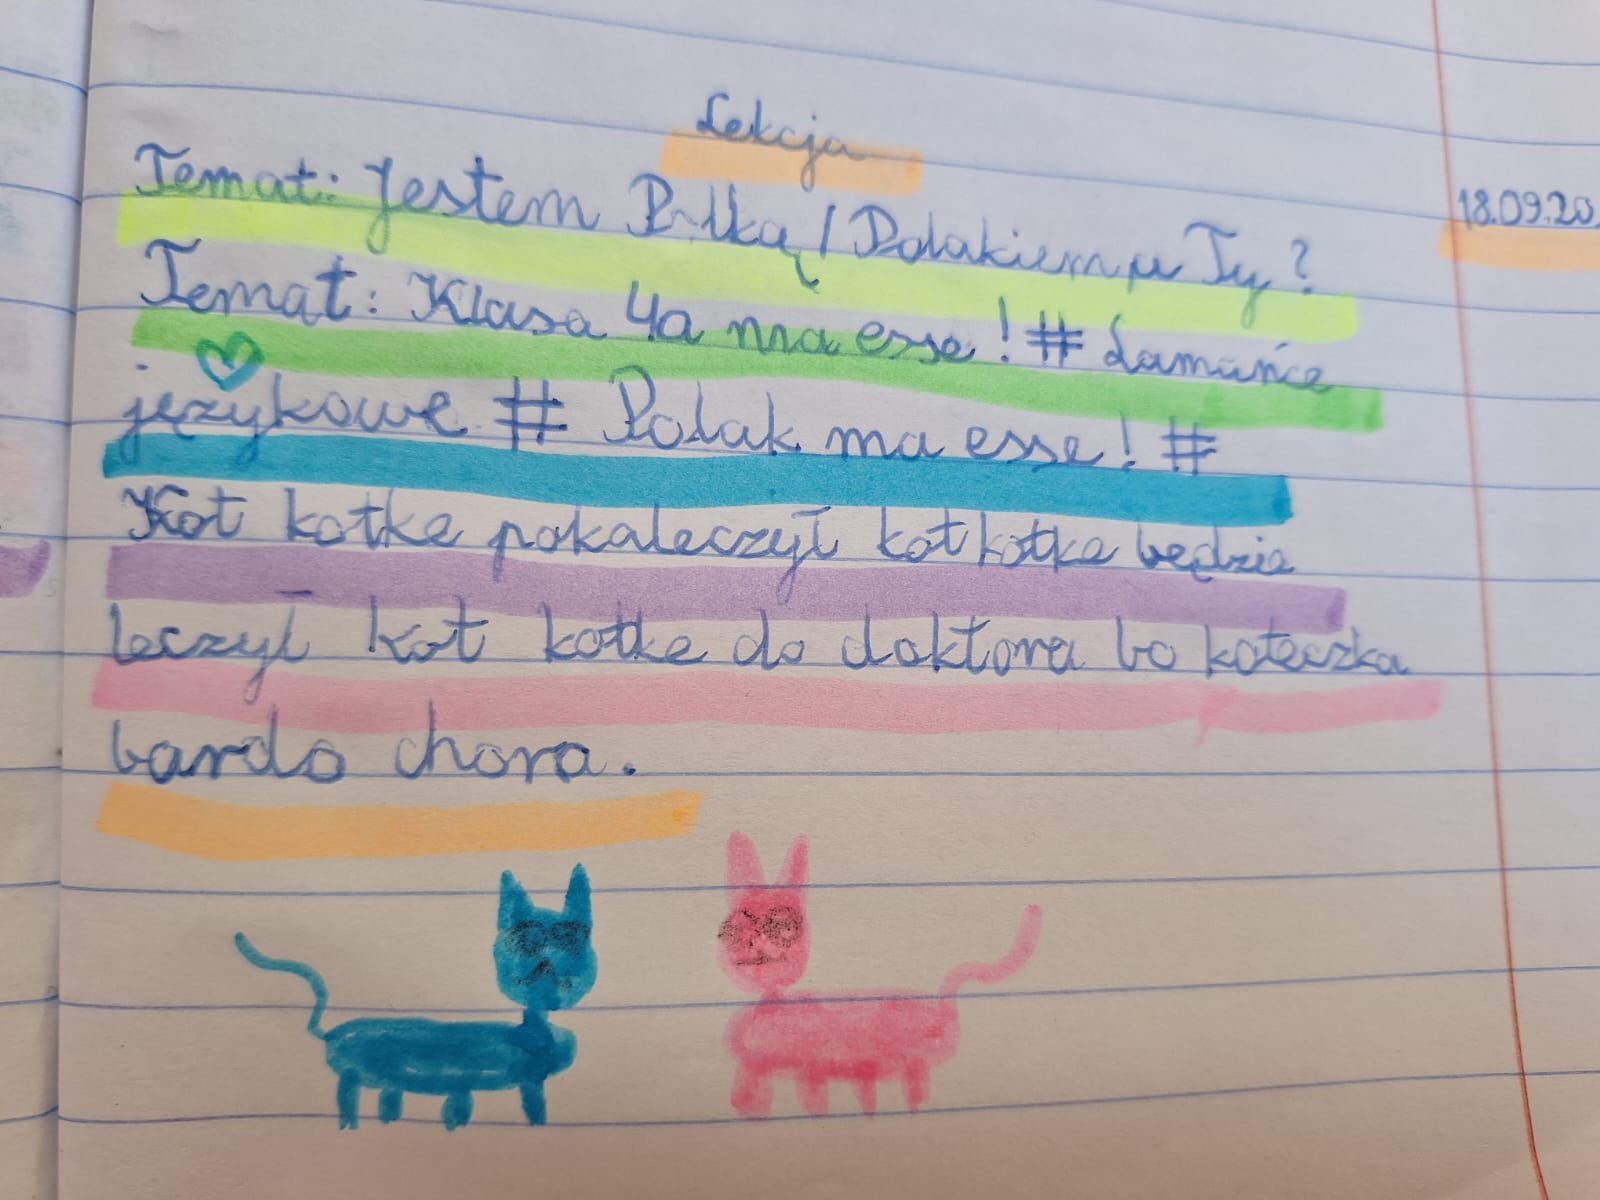 Lekcja
18.09.20
Temat: Jestem Polką / Polakiem a Ty?
Temat: Klasa 4a ma esse! # Łamańce
językowe # Polak ma esse! #
Kot kotke pokaleczył kot kotke będzie
leczył kot kotke do doktora bo koteczka
bardo chora.